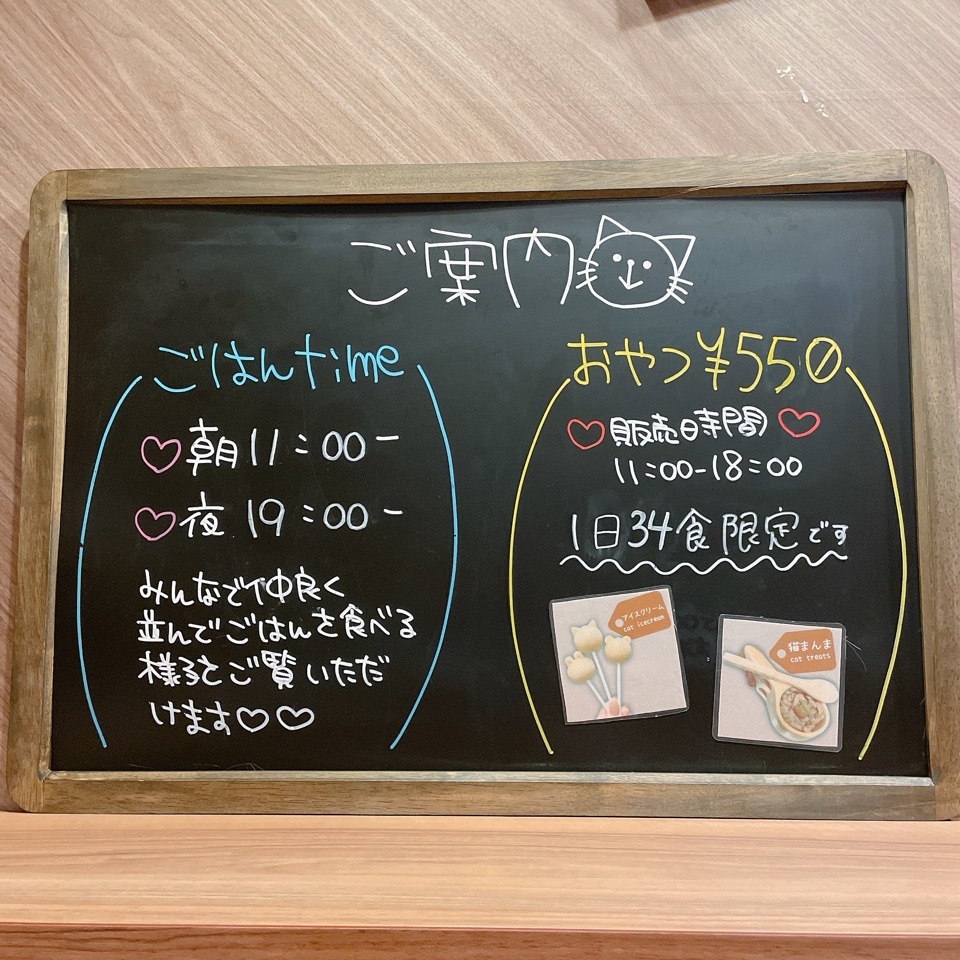 ご案内
ごはんtime
朝11:00-
夜19:00-
みんなで仲良く
並んでごはんを食べる
様子をご覧いただ
けます
おやつ¥550
販売時間
11:00-18:00
1日34食限定です
アイスクリーム
cat icecream
猫まんま
cat treats